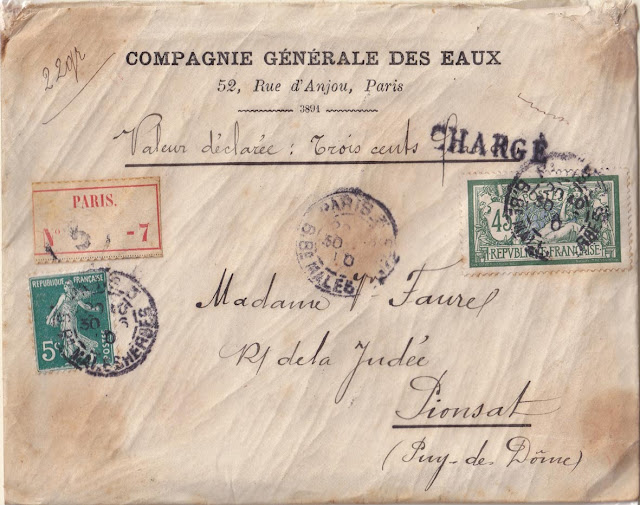 22gr
COMPAGNIE GÉNÉRALE DES EAUX
52, Rue d'Anjou, Paris
3891
Valeur déclarée : Trois cents francs
CHARGÉ
PARIS.
N° - 7
PARIS
Bd MALESHERBES
45
REPUBLIQUE FRANÇAISE
REPUBLIQUE FRANÇAISE
5c
POSTES
MALESHERBES
Madame Vve Faure
de la Judée
Pionsat
(Puy-de-Dôme)